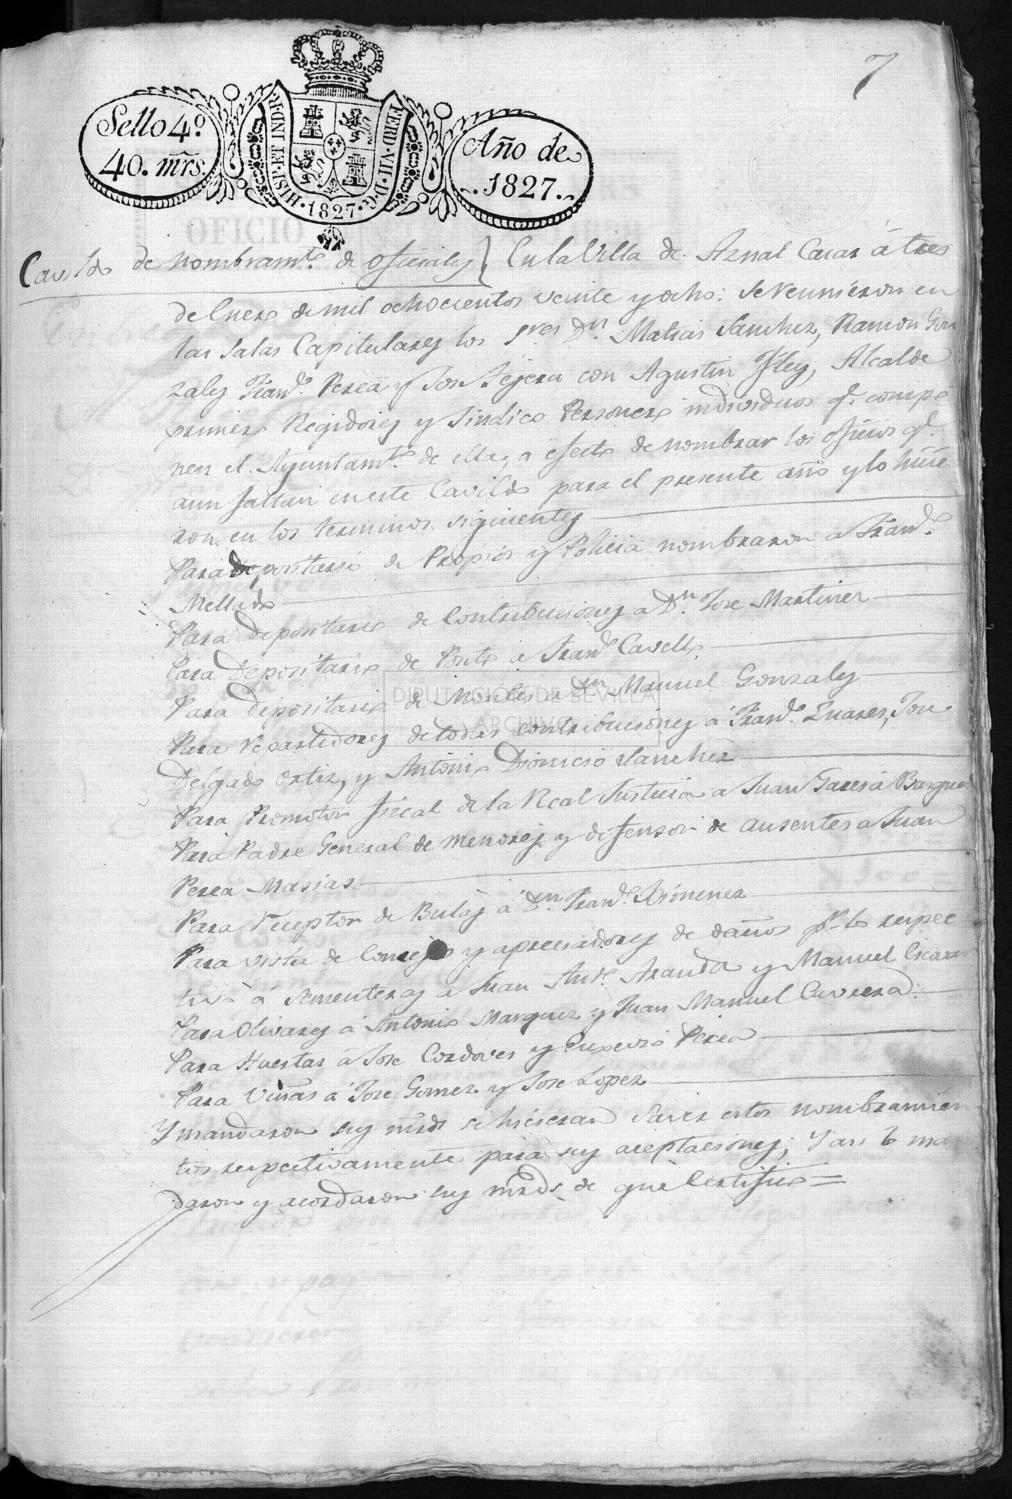 7
Sello 4º
40. mrs.
HISP. ET IND. R.
FERD. VII. D. G.
1827
Año de
1827.
OFICIO
Cavildo de nombramto. de oficiales } En la Villa de Aznal Cazar á tres
de Enero de mil ochocientos veinte y ocho: se reunieron en
las Salas Capitulares los Sres. Dn. Matias Sanchez, Ramon Gon
zales Frando. Perea y Jose Tejera con Agustin Alcalde
primero Regidores y Sindico Personero individuos qe. compo
nen el Ayuntamto. de ella, a efecto de nombrar los oficios qe.
aun faltan en este Cavildo para el presente año y lo hicie
ron en los terminos siguientes
Para depositario de Propios y Policia nombraron a Frando.
Mellado
Para depositario de Contribuciones a Dn. Jose Martinez
Para Depositario de Posito a Frando. Cavello
Para depositario de Montes a Dn. Manuel Gonzales
DIPUTACIÓN DE SEVILLA
ARCHIVO
Para Repartidores de todas contribuciones á Frando. Suares, Jose
Delgado Ortiz, y Antonio Dionicio Sanchez
Para Promotor fiscal de la Real Justicia a Juan Garcia
Para Padre General de menores y defensor de ausentes a Juan
Perea Masias
Para Receptor de Bulas á Dn. Frando. Ximenez
Para vista de Consejo y apreciadores de daños pr. lo respec
tivo á sementeras a Juan Anto. Aranda y Manuel
Para Olivares á Antonio Marquez y Juan Manuel Cavrera
Para Huertas á Jose Cordoves y Perea
Para Viñas á Jose Gomez y Jose Lopez
Y mandaron sus mrds se hicieran saver estos nombramien
tos respectivamente para sus aceptaciones; Y asi lo man
daron y acordaron sus mrds. de que Certifico =